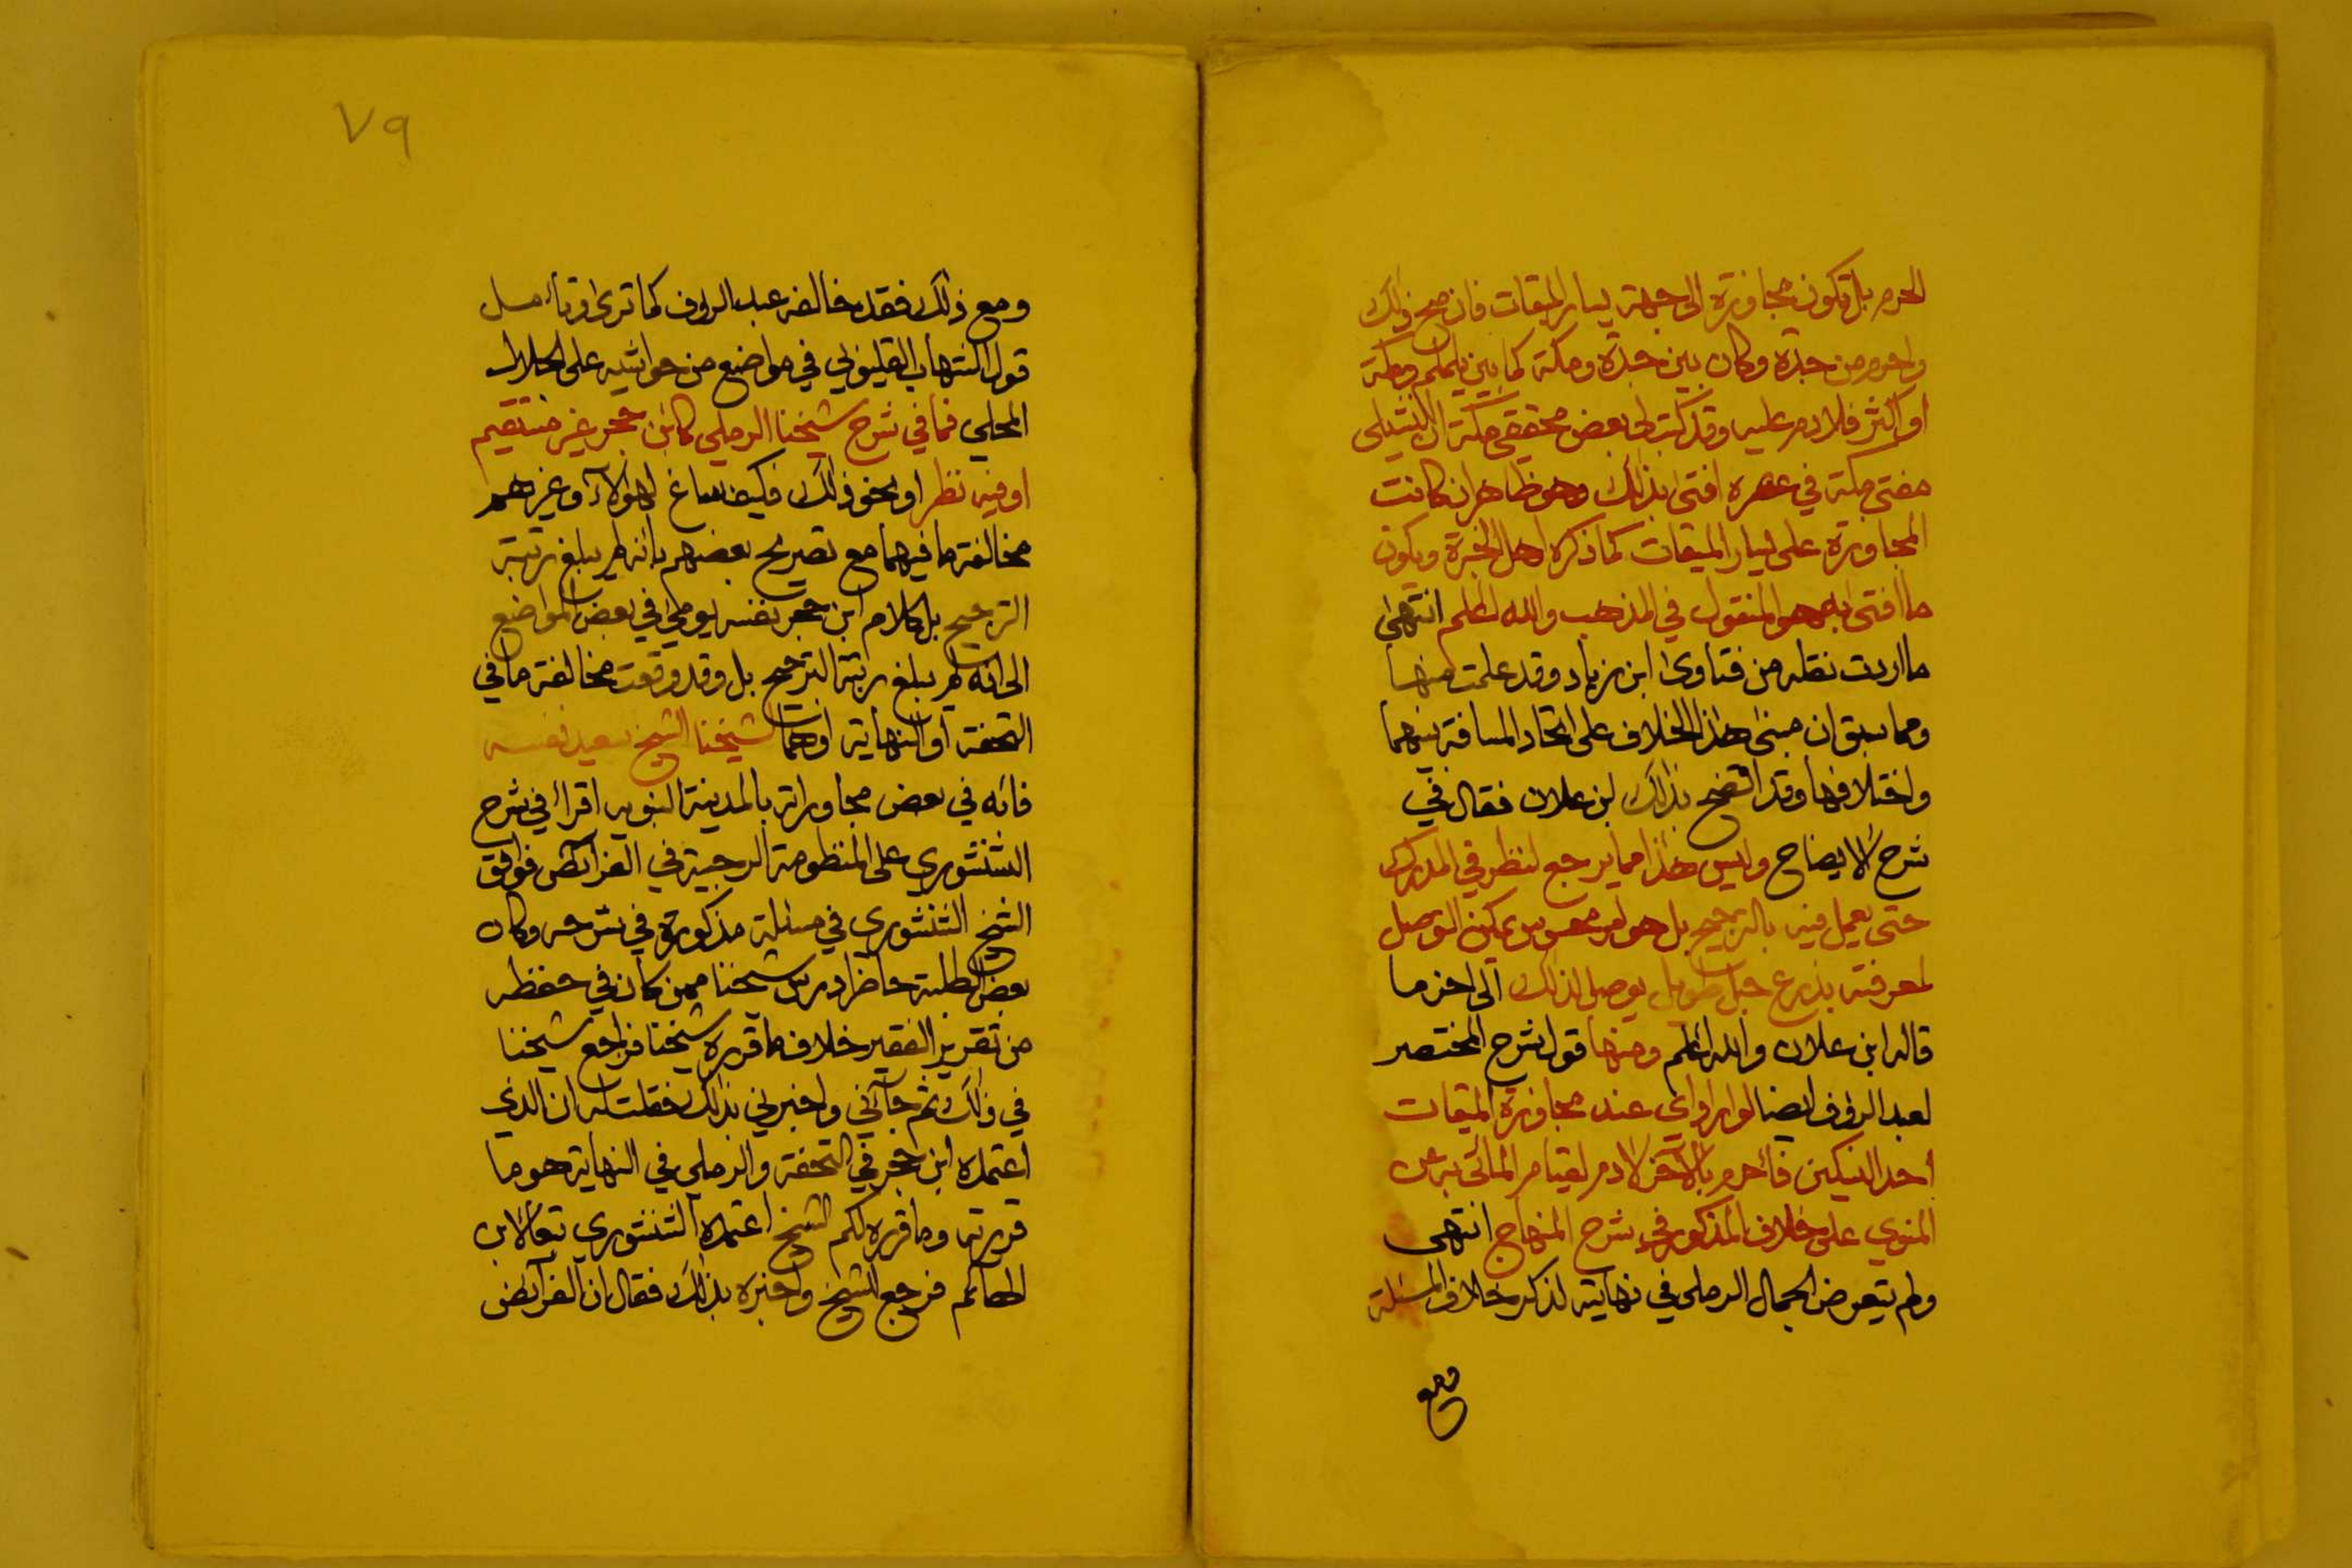 الحرم بل تكون مجاوزته الى جهة يسار الميقات فان صح ذلك
واحرم من جدة وكان بين جدة ومكة كما بين يلملم ومكة
او اكثر فلا دم عليه وقد كتب لى بعض محققى مكة ان النشيلى
مفتى مكة في عصره افتى بذلك وهو ظاهر ان كانت
المجاوزة على يسار الميقات كما ذكره اهل الخبرة ويكون
ما افتى به هو المنقول في المذهب والله اعلم انتهى
ما اردت نقله من فتاوى ابن زياد وقد علمت منها
ومما سبق ان مبنى هذا الخلاف على اتحاد المسافة بينهما
واختلافها وقد افصح بذلك ابن علان فقال في
شرح الايضاح وليس هذا مما يرجع لنظر في المدرك
حتى يعمل فيه بالترجيح بل هو امر محسوس يمكن التوصل
لمعرفته بذرع حبل طويل يوصل لذلك الى اخر ما
قاله ابن علان والله اعلم ومنها قول شرح المختصر
لعبد الرؤف ايضا لو اراد اى عند مجاوزة الميقات
احد النسكين فأحرم بالآخر لا دم لقيام المأتي به عن
المنوي على خلاف المذكور في شرح المنهاج انتهى
ولم يتعرض الجمال الرملى في نهايته لذكر خلاف المسئلة
ومع
٧٩
ومع ذلك فقد خالفه عبد الرؤف كما ترى وتأمل
قول الشهاب القليوبي في مواضع من حواشيه على الجلال
المحلي فما في شرح شيخنا الرملي كابن حجر غير مستقيم
او فيه نظر او نحو ذلك فكيف ساغ لهؤلآء وغيرهم
مخالفة ما فيهما مع تصريح بعضهم بانه لم يبلغ رتبة
الترجيح بل كلام ابن حجر نفسه يومئ في بعض المواضع
الى انه لم يبلغ رتبة الترجيح بل وقد وقعت مخالفة ما في
التحفة او النهاية اوهما لشيخنا الشيخ سعيد نفسه
فانه في بعض مجاوراته بالمدينة النبويه اقرأ في شرح
الشنشوري على المنظومة الرحبية في الفرآئض فوافق
الشيخ الشنشوري في مسئلة مذكورة في شرحه وكان
بعض الطلبة حاضرا درس شيخنا ممن كان في حفظه
من تقرير الفقير خلاف ما قرره شيخنا فراجع شيخنا
في ذلك ثم جآئني واخبرني بذلك فقلت له ان الذي
اعتمده ابن حجر في التحفة والرملي في النهاية هو ما
قررته وما قرره لكم الشيخ اعتمده الشنشوري تبعا لابن
الهائم فرجع للشيخ واخبره بذلك فقال ان الفرآئض